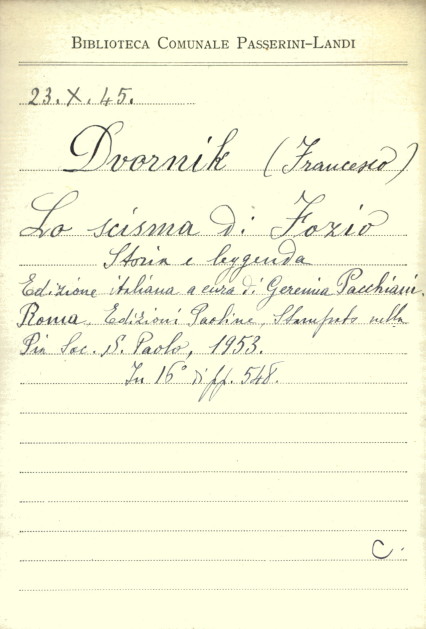 BIBLIOTECA COMUNALE PASSERINI-LANDI
23.X.45.
Dvornik (Francesco)
Lo scisma di Fozio
Storia e leggenda
Edizione italiana a cura di Geremia Pacchiani.
Roma, Edizioni Paoline, Stampato nella
Pia Soc. S. Paolo, 1953.
In 16° di pp. 548.
C.